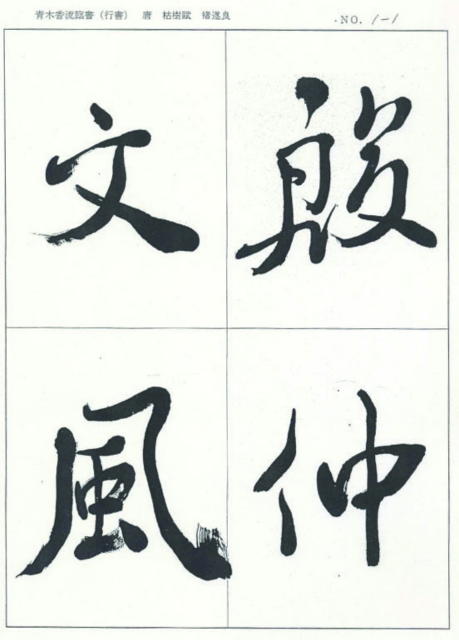 青木香流臨書（行書） 唐 枯樹賦 褚遂良
NO. 1-1
殷仲
文風